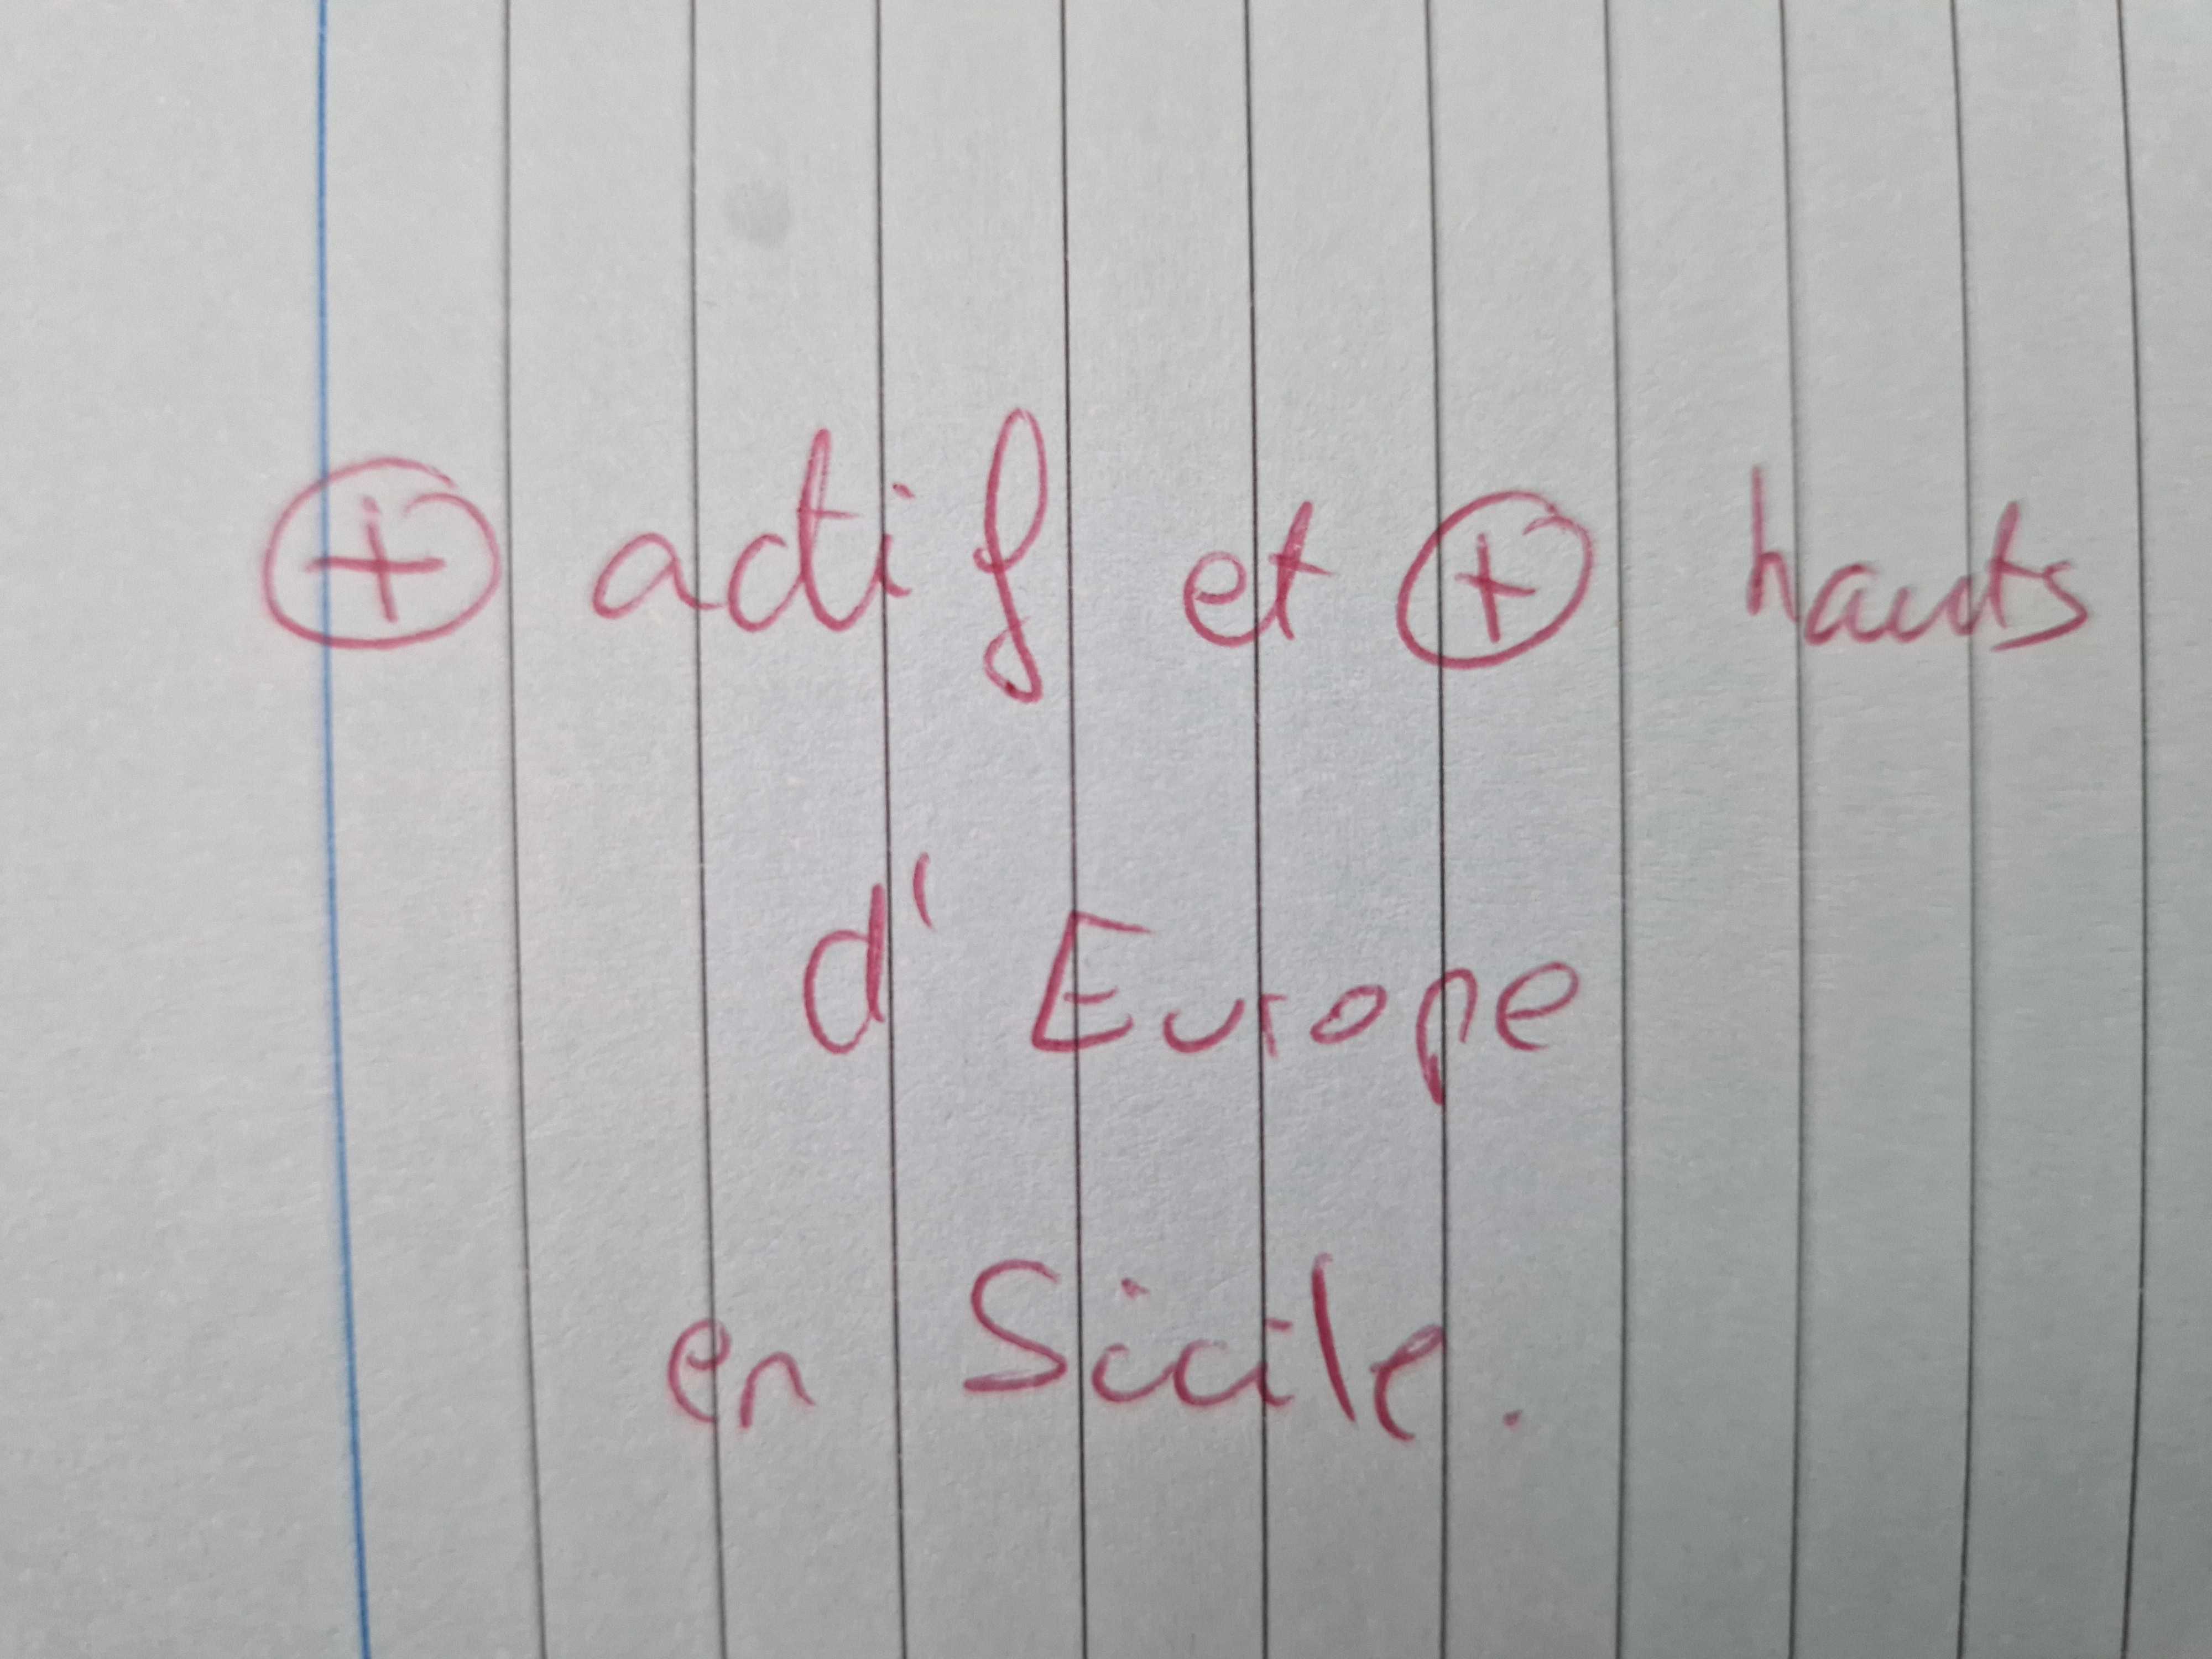 ⊕ actif et ⊕ hauts
d' Europe
en Sicile.